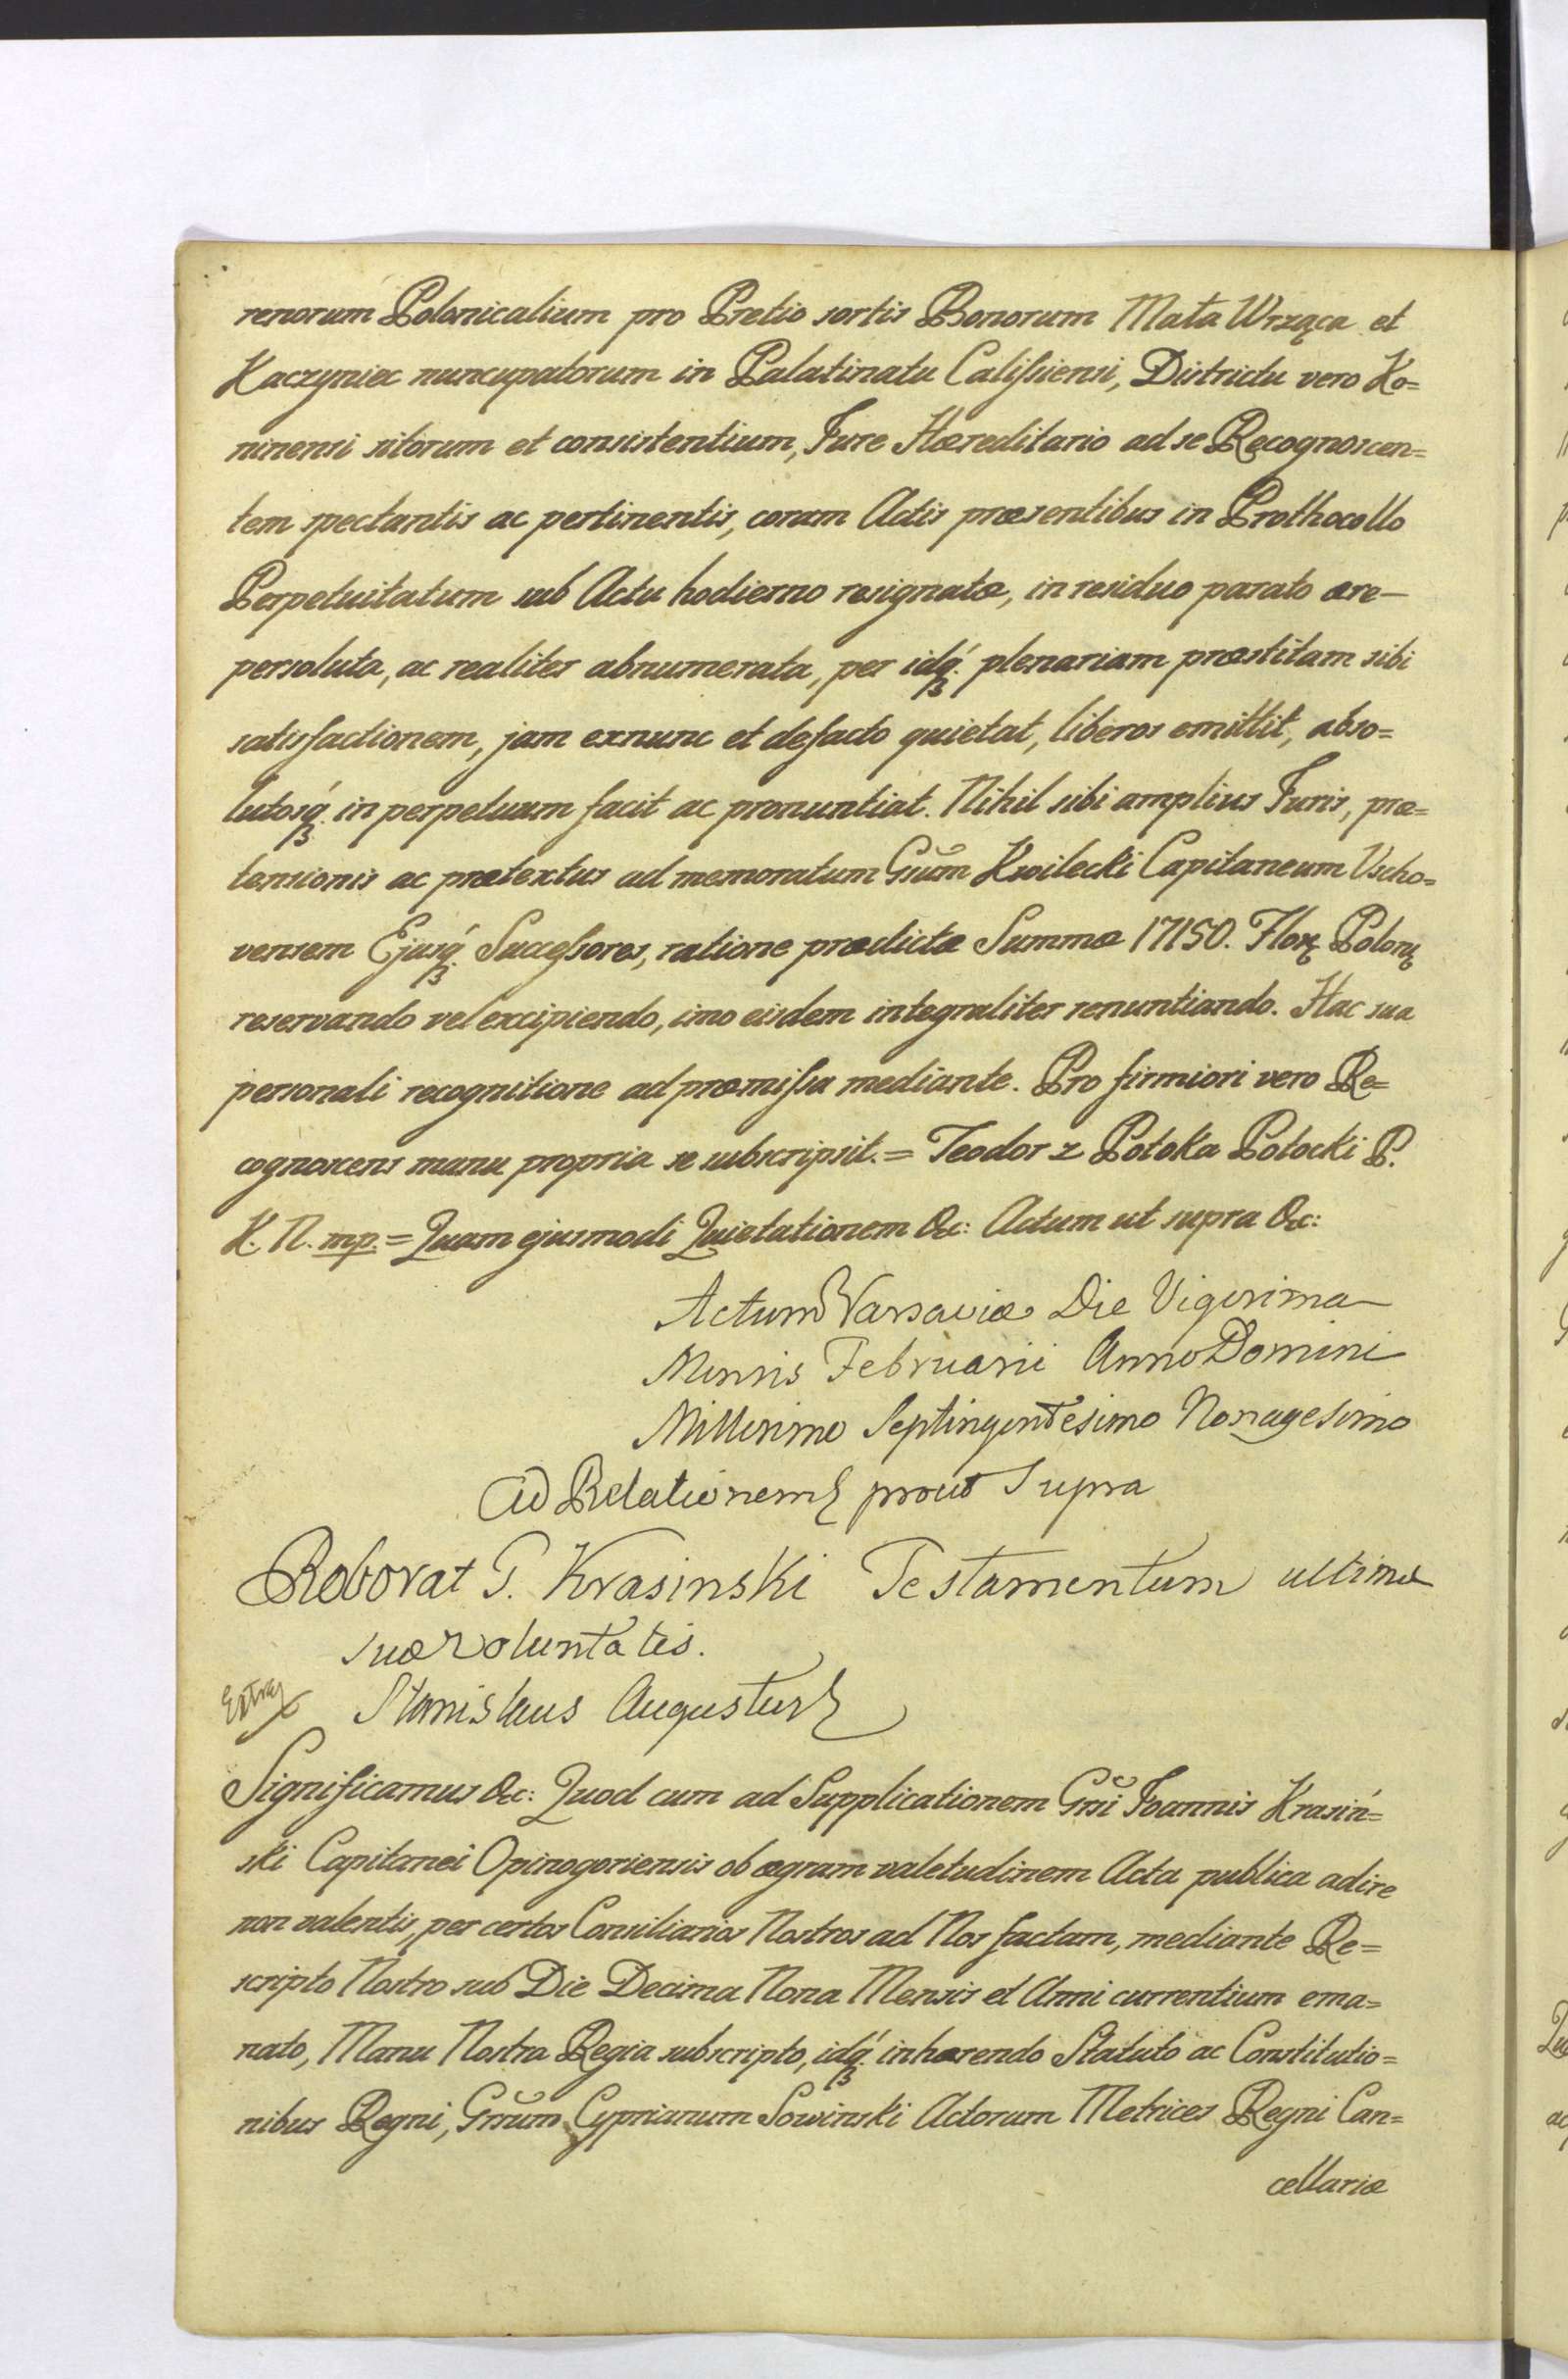 renorum Polonicalium pro Pretio sortis Bonorum Mała Wrząca et
Kaczyniec nuncupatorum in Palatinatu Calissiensi, Districtu vero Ko=
ninensi sitorum et consistentium, Jure Hæreditario ad se Recognoscen=
tem spectantis ac pertinentis, coram Actis præsentibus in Prothocollo
Perpetuitatum sub Actu hodierno resignatæ, in residuo parato ære—
persoluta, ac realiter abnumerata, per idq́ꝫ plenariam præstitam sibi
satisfactionem, jam exnunc et defacto quietat, liberos emittit, abso=
lutosq́ꝫ in perpetuum facit ac pronuntiat. Nihil sibi amplius Juris, præ=
tensionis ac prætextus ad memoratum Gsũm Kwilecki Capitaneum Vscho=
vensem Ejusq́ꝫ Successores, ratione prædictæ Summæ 17150. Florꝫ Polonꝫ
reservando vel excipiendo, imo eisdem integraliter renuntiando. Hac sua
personali recognitione ad præmissa mediante. Pro firmiori vero Re=
cognoscens manu propria se subscripsit. = Teodor z Potoka Potocki P.
K. N. mp. = Quam ejusmodi Quietationem &c: Actum ut supra &c:
Actum Varsaviæ Die Vigesima
Mensis Februarii Anno Domini
Millesimo Septingentesimo Nonagesimo
Ad Relationem prout Supra
Roborat G. Krasinski Testamentum ultimæ
suæ voluntatis.
Extra
Stanislaus Augustus
Significamus &c: Quod cum ad Supplicationem Gsĩ Joannis Krasiń=
ski Capitanei Opinogoriensis ob ægram valetudinem Acta publica adire
non valentis, per certos Consiliarios Nostros ad Nos factam, mediante Re=
scripto Nostro sub Die Decima Nona Mensis et Anni currentium ema=
nato, Manu Nostra Regia subscripto, idq́ꝫ inhærendo Statuto ac Constitutio=
nibus Regni, Gsũm Cyprianum Sowinski Actorum Metrices Regni Can=
cellariæ